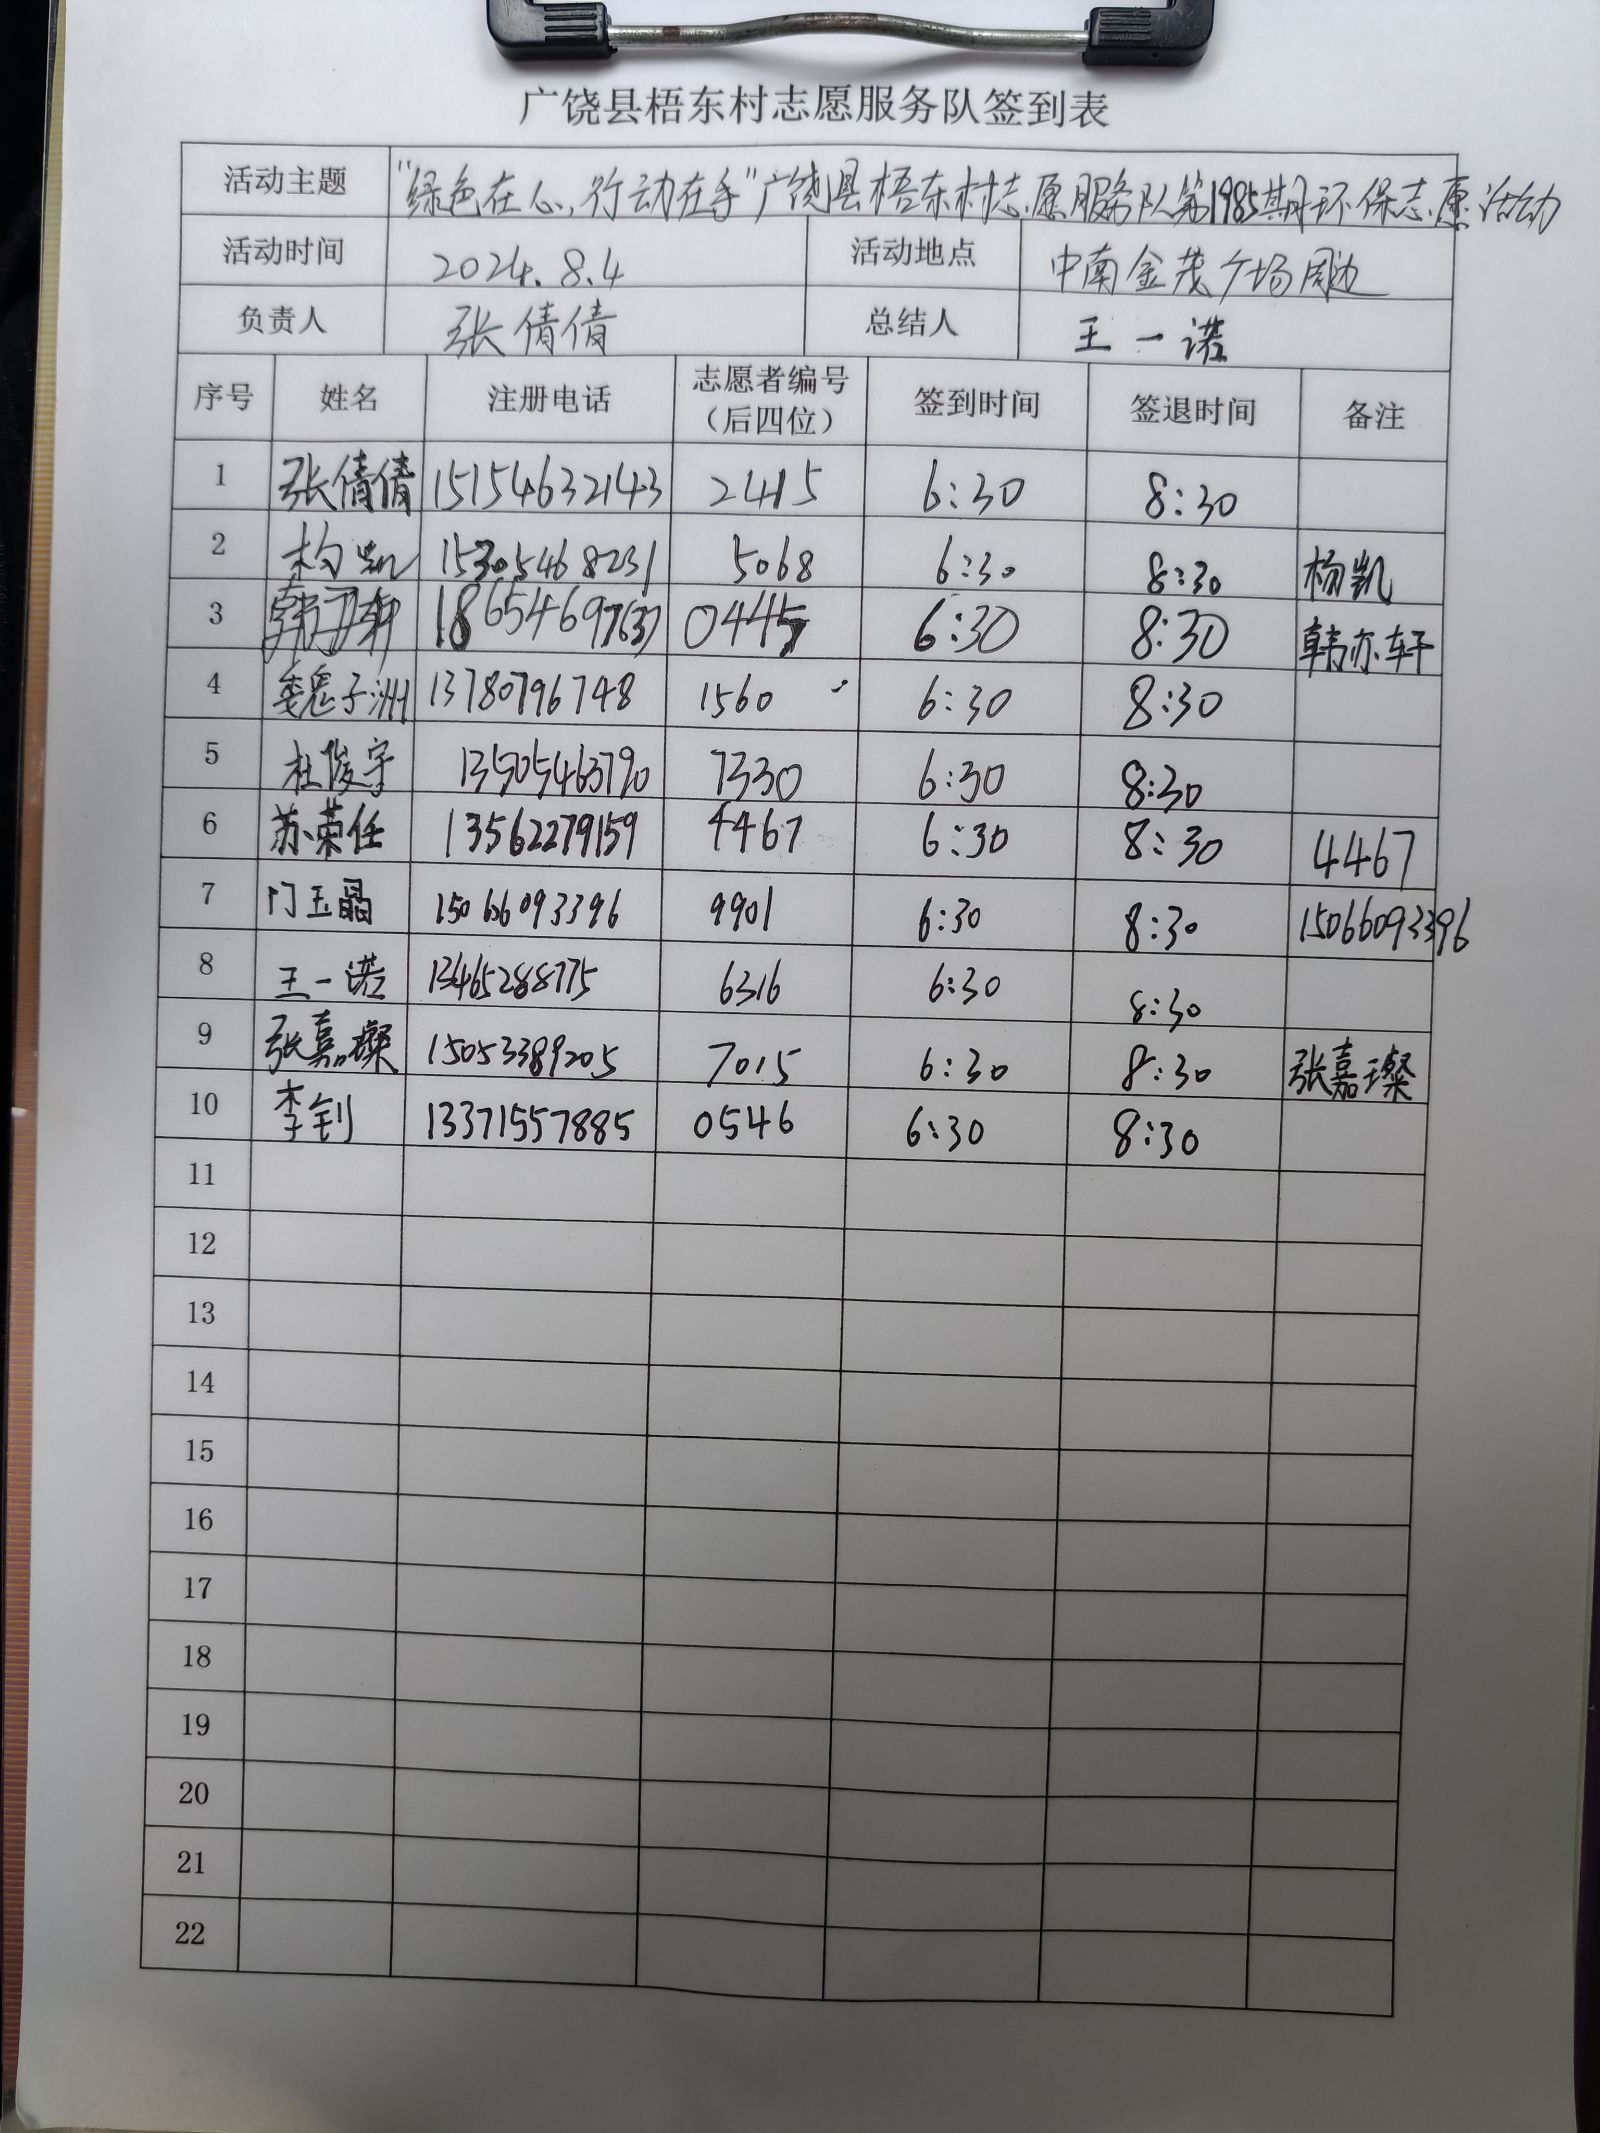 广饶县梧东村志愿服务队签到表
活动主题 "绿色在心,行动在手"广饶县梧东村志愿服务队第1985期环保志愿活动
活动时间 2024.8.4 活动地点 中南金茂广场周边
负责人 张倩倩 总结人 王一诺
序号 姓名 注册电话 志愿者编号 签到时间 签退时间 备注
(后四位)
1 张倩倩 15154632143 2415 6:30 8:30
2 杨凯 15305468231 5068 6:30 8:30 杨凯
3 韩亦轩 0445 6:30 8:30 韩亦轩
4 魏子洲 13780796748 1560 6:30 8:30
5 杜俊宇 13505463790 7330 6:30 8:30
6 苏荣任 13562279159 4467 6:30 8:30 4467
7 门玉晶 15066093396 9901 6:30 8:30 15066093396
8 王一诺 13465288775 6316 6:30 8:30
9 张嘉璨 15053389205 7015 6:30 8:30 张嘉璨
10 李钊 13371557885 0546 6:30 8:30
11
12
13
14
15
16
17
18
19
20
21
22